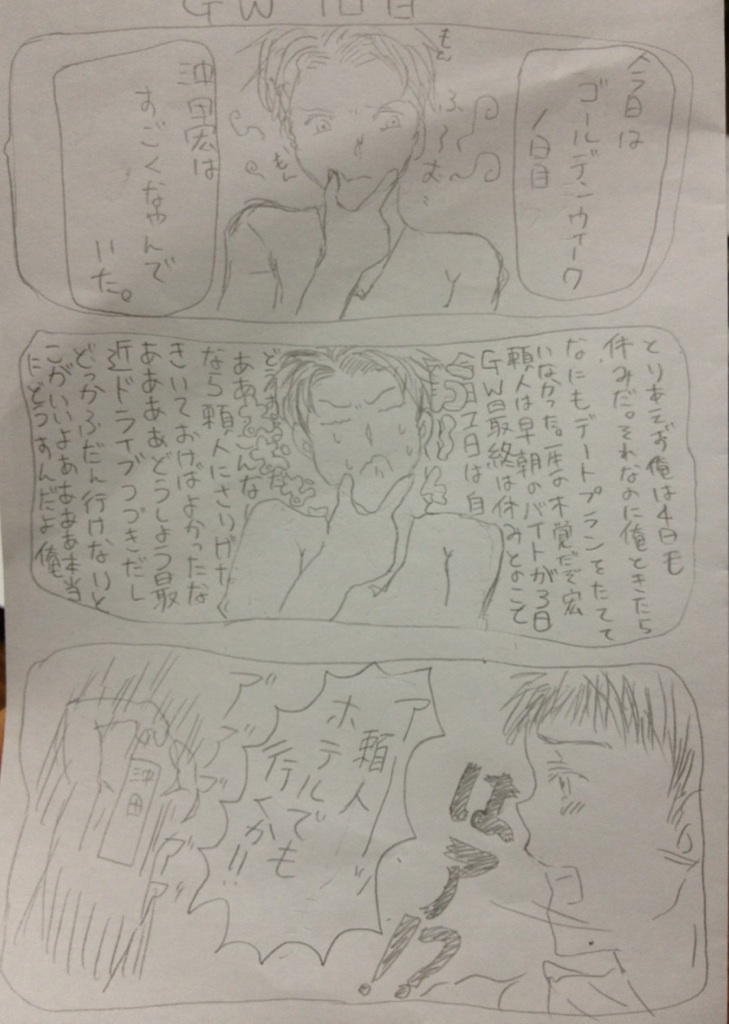 GW 1日目
今日は
ゴールデンウィーク
1日目
もん
ふ〜む…
もん
沖田宏は
すごくなやんで
いた。
とりあえず俺は4日も
休みだ。それなのに俺ときたら
なにもデートプランをたてて
いなかった。一生の不覚だぞ宏
頼人は早朝のバイトが3日
GW最終は休みとのこと
1日は自
ああこんな
なら頼人にさりげなく
きいておけばよかったな
ああああどうしよう最
近ドライブつづきだし
どっかふだん行けないと
こがいいよああああ本当
にどうすんだよ俺
はア!?
アーッ
頼人
ホテルでも
行くか!!
アブ
アブ
アブ
沖田